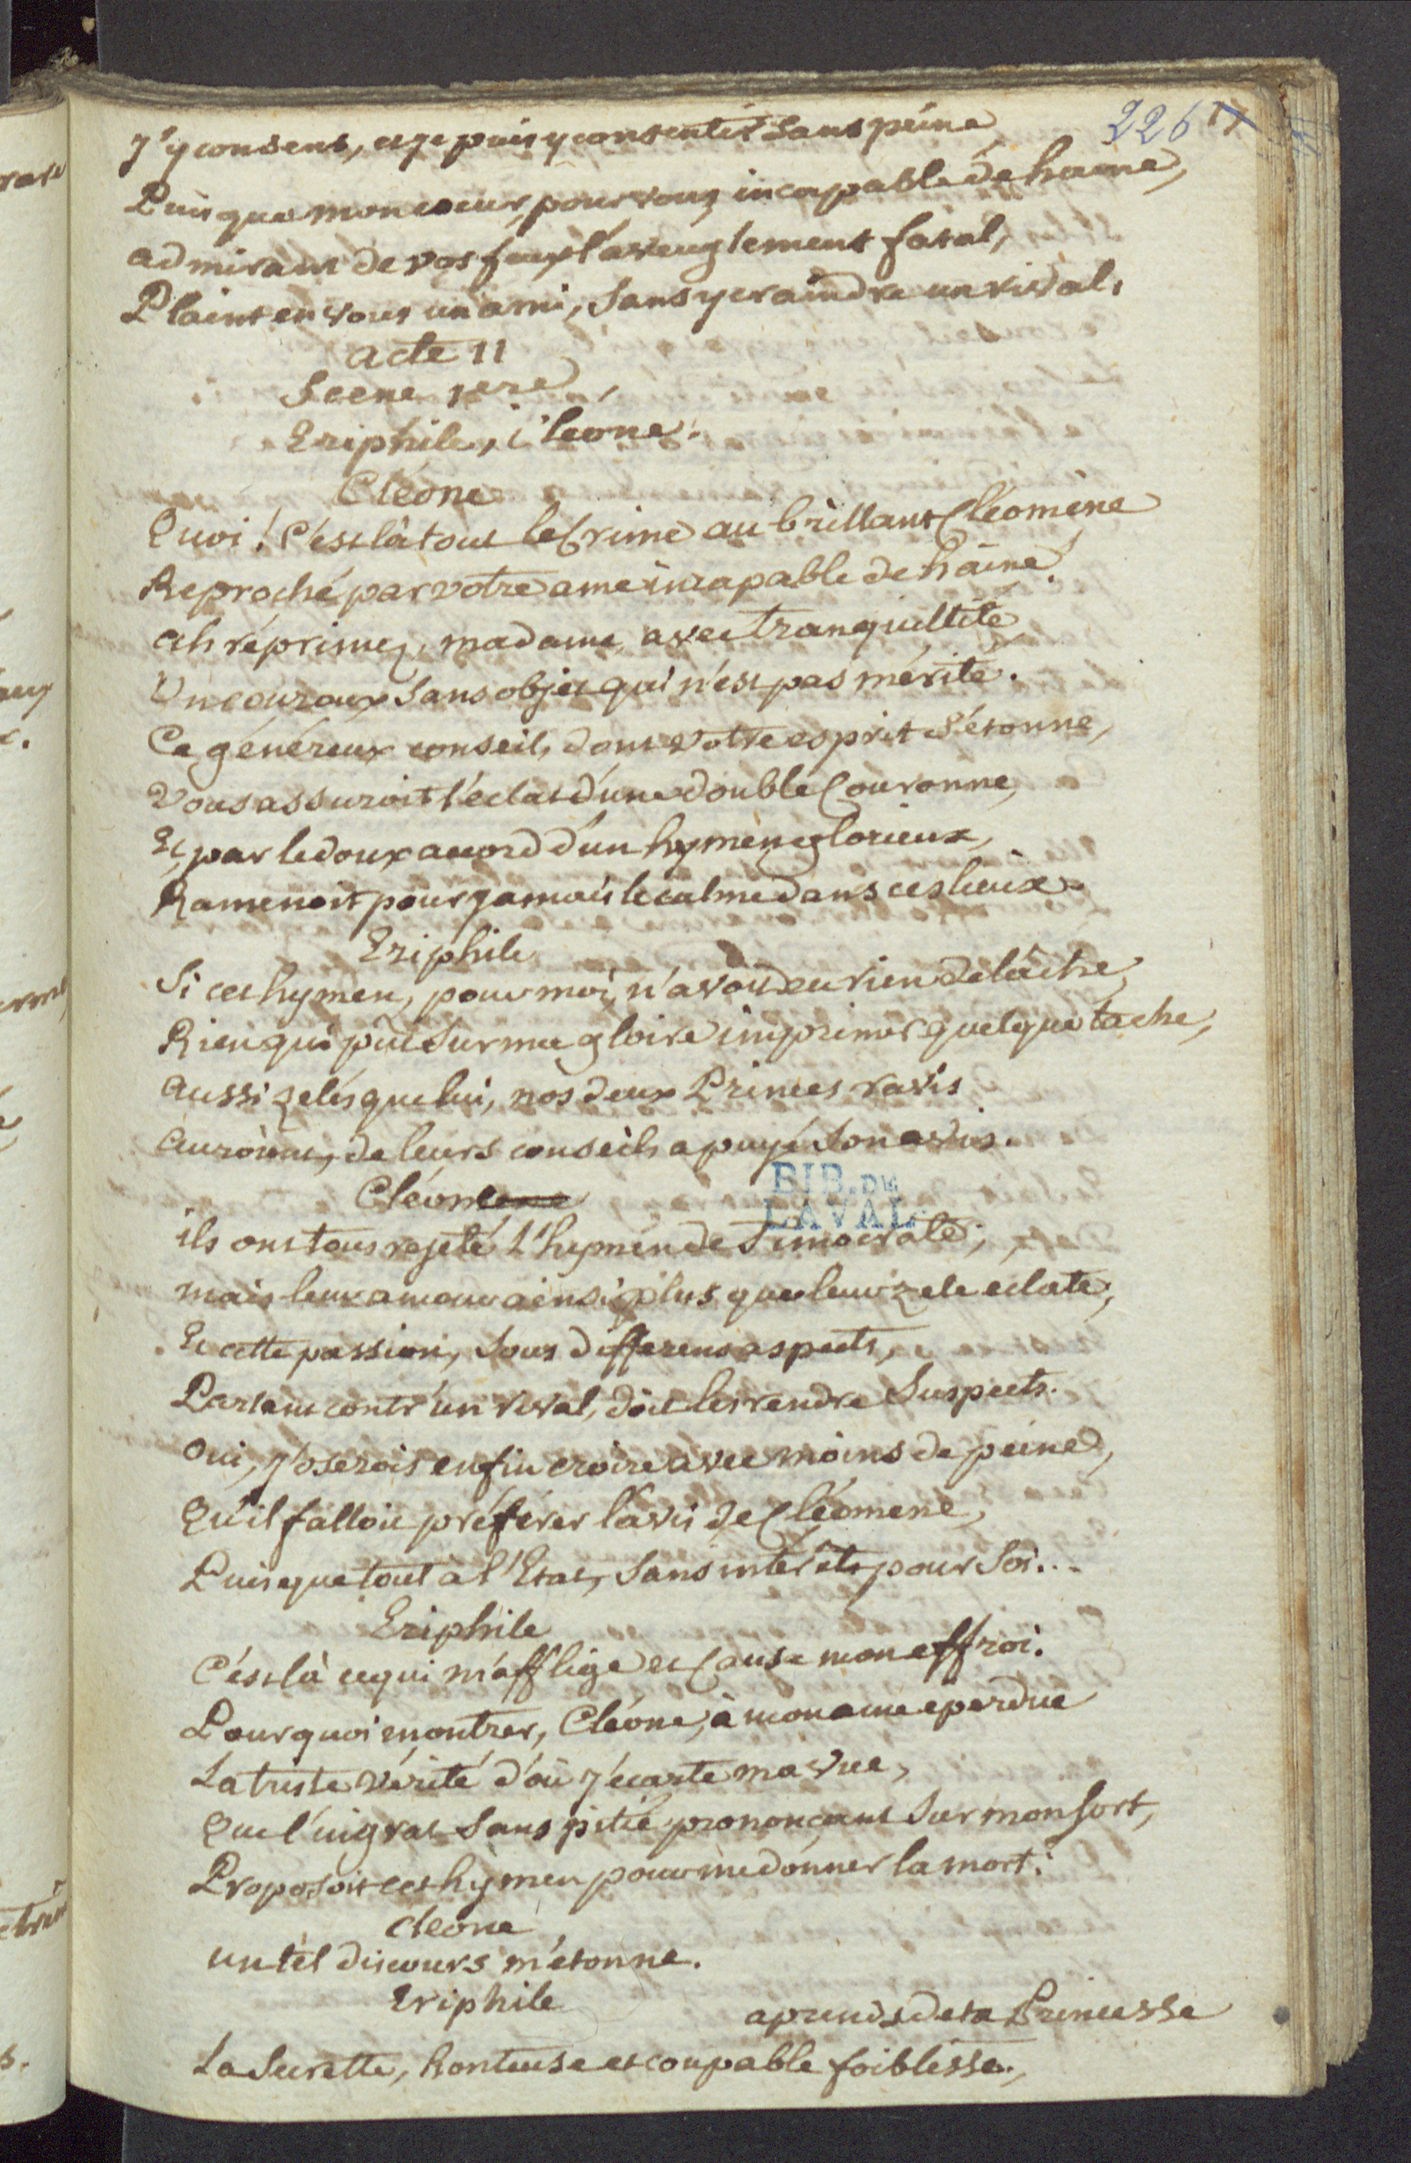 226 17
J'y consens, et je puis y consentir sans peine
Puisque mon coeur, pour vous incapable de haine,
admirant de vos feux l'aveuglement fatal,
Plaint en vous un ami, sans y craindre un rival.
acte 11
Scene 1ere,
Eriphile, Cleone.
Cléone
Quoi! C'est là tout le Crime au brillant Cléomène
Reproché par votre ame incapable de haine!
ah réprimez, madame, avec tranquillité
Un couroux sans objet qui n'est pas mérité.
Ce généreux conseil, dont votre esprit s'étonne,
Vous assuroit l'éclat d'une double Couronne,
Et par le doux accord d'un hymen glorieux,
Ramenoit pour jamais le calme dans ces lieux.
Eriphile
Si cet hymen, pour moi, n'avoit eu rien de lâche,
Rien qui put sur ma gloire imprimer quelque tache,
aussi zelés que lui, nos deux Princes ravis
auroient, de leurs conseils apuyé son avis.
Cléone
ils ont tous rejeté l'hymen de Timocrate;
mais leur amour ainsi plus que leur zele eclate,
Et cette passion, sous differens aspects,
Parlant contr'un rival, doit les rendre suspects.
Oui, j'oserois enfin croire avec moins de peine,
Qu'il falloit préférer l'avis de Cléomene,
Puisque tout à l'Etat, sans intérêts pour soi...
Eriphile
C'est là ce qui m'afflige et Cause mon effroi.
Pourquoi montrer, Cléone, à mon ame eperdue
La triste vérité d'où j'écarte ma vue,
Que l'ingrat sans pitié prononçant sur mon sort,
Proposoit cet hymen pour me donner la mort.
cleone
un tel discours m'étonne.
Eriphile
aprends de ta Princesse
La secrette, honteuse et coupable foiblesse,
BIB. DE
LAVAL